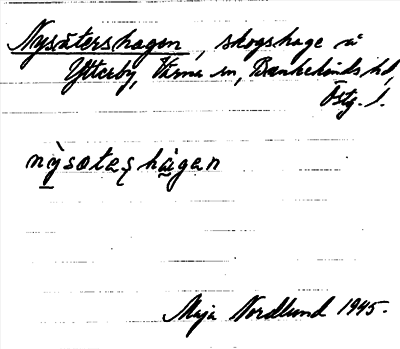 Nysätershagen, skogshage å
Ytterby, Värna sn, Bankekinds hd,
Östg. l.
nỳsætaʂ hàgan
Maja Nordlund 1945.